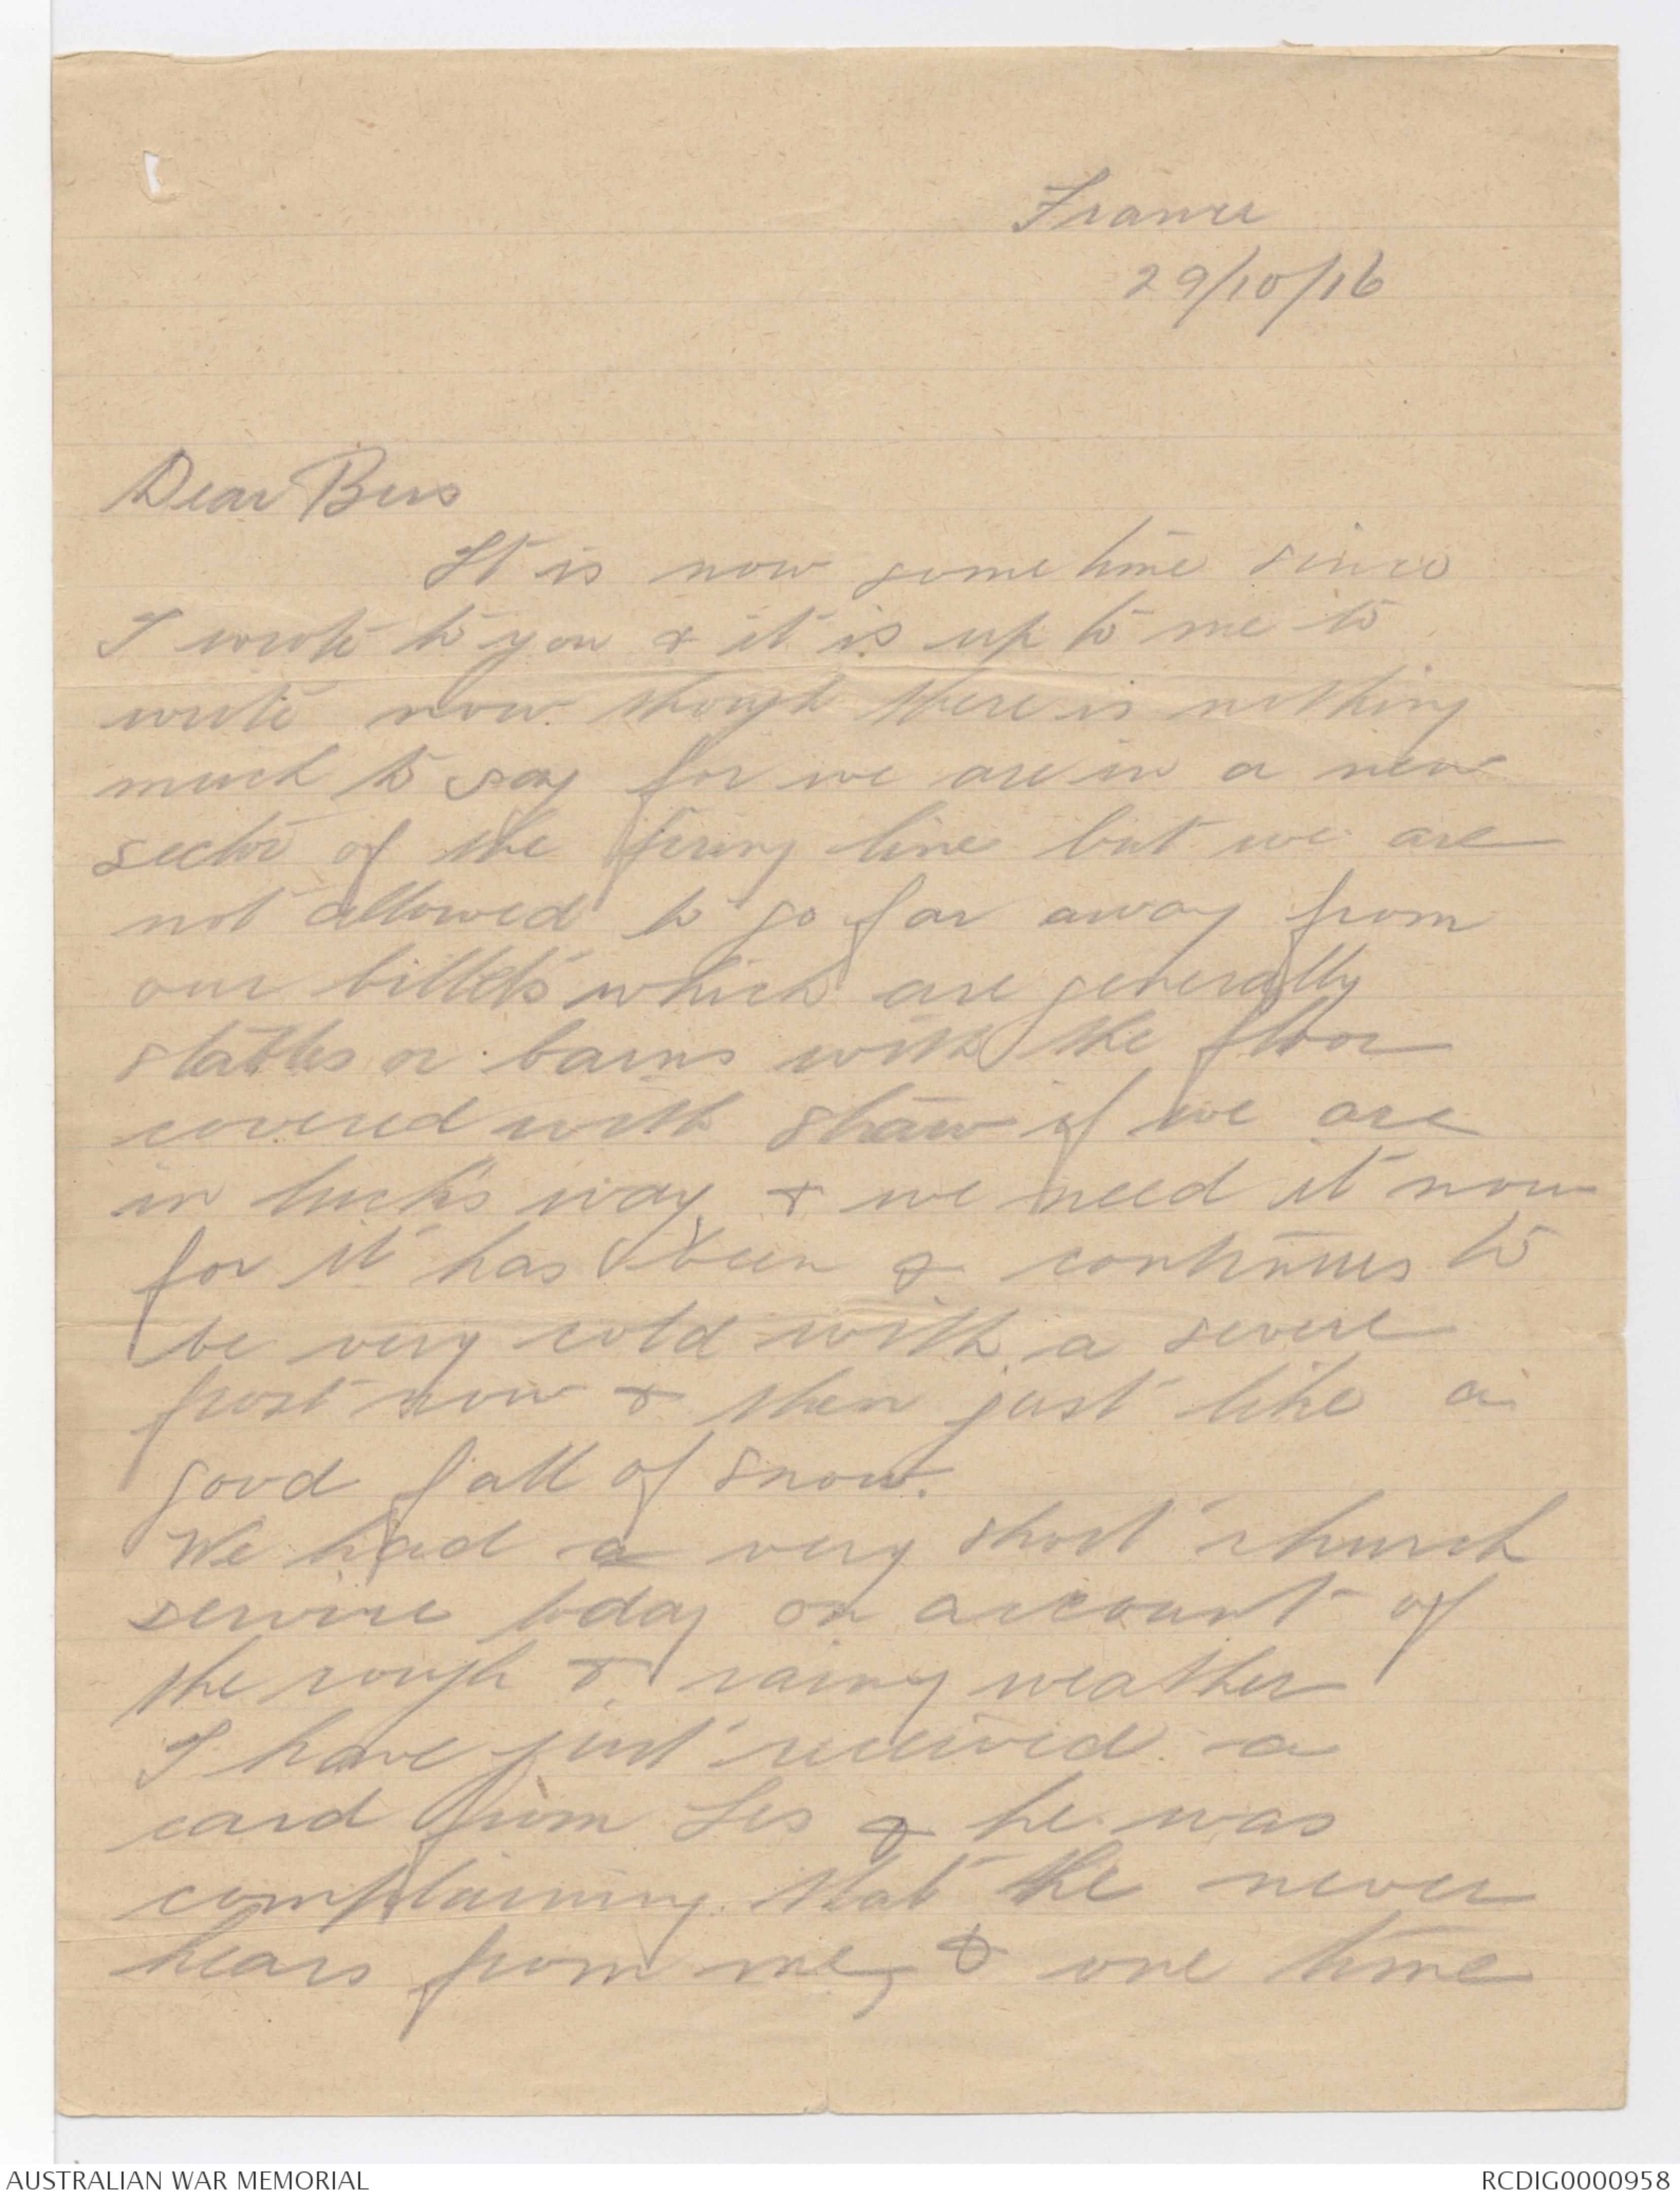 France
29/10/16
Dear Bess
It is now some time since
I wrote to you & it is up to me to
write now though there is nothing
much to say for we are in a new
sector of the firing line but we are
not allowed to go far away from
our billets which are generally
stables or barns with the floor
covered with straw if we are
in luck's way, & we need it now
for it has been & continues to
be very cold with a severe
frost now & then just like a
good fall of snow.
We had a very short church
service today on account of
the rough & rainy weather
I have just received a
card from Les & he was
complaining that he never
hears from me, & one time
AUSTRALIAN WAR MEMORIAL
RCDIG0000958